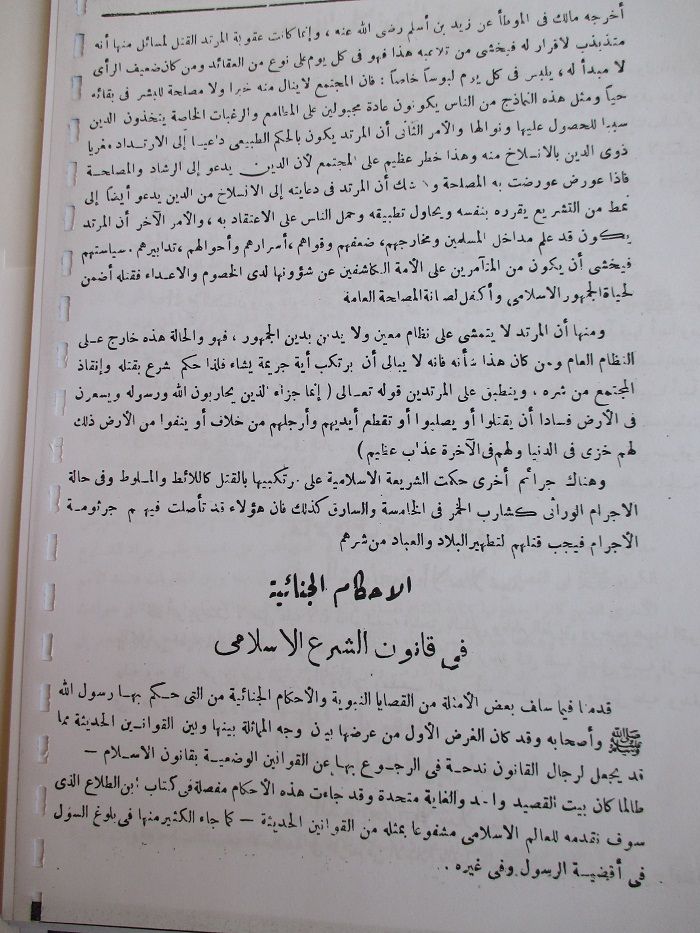 أخرجه مالك فى الموطأ عن زيد بن أسلم رضى الله عنه ، وإنما كانت عقوبة المرتد القتل لمسائل منها أنه
متذبذب لا قرار له فيخشى من تلاعبه هذا فهو فى كل يوم على نوع من العقائد ومن كان ضعيف الرأى
لا مبدأ له ، يلبس فى كل يوم لبوسا خاصا : فان المجتمع لا ينال منه خيرا ولا مصلحة للبشر فى بقائه
حيا ومثل هذه النماذج من الناس يكونون عادة مجبولين على المطامع والرغبات الخاصة يتخذون الدين
سببا للحصول عليها ونوالها والأمر الثانى أن المرتد يكون بالحكم الطبيعى داعيا إلى الارتداد مغريا
ذوى الدين بالانسلاخ منه وهذا خطر عظيم على المجتمع لأن الدين يدعو إلى الرشاد والمصلحة
فاذا عورض عورضت به المصلحة ولا شك أن المرتد فى دعايته إلى الانسلاخ من الدين يدعو أيضا إلى
نمط من التشريع يقرره بنفسه ويحاول تطبيقه وحمل الناس على الاعتقاد به ، والأمر الآخر أن المرتد
يكون قد علم مداخل المسلمين ومخارجهم، ضعفهم وقواهم ،أسرارهم وأحوالهم ،تدابيرهم . سياستهم
فيخشى أن يكون من المتآمرين على الأمة الكاشفين عن شؤونها لدى الخصوم والاعداء فقتله أضمن
لحياة الجمهور الاسلامى وأكفل لصيانة المصلحة العامة
ومنها أن المرتد لا يتمشى على نظام معين ولا يدين بدين الجمهور ، فهو والحالة هذه خارج على
النظام العام ومن كان هذا شأنه فانه لا يبالى أن يرتكب أية جريمة يشاء فلذا حكم شرع بقتله وإنقاذ
المجتمع من شره ، وينطبق على المرتدين قوله تعالى ( إنما جزاء الذين يحاربون الله ورسوله ويسعون
فى الأرض فسادا أن يقتلوا أو يصلبوا أو تقطع أيديهم وأرجلهم من خلاف أو ينفوا من الأرض ذلك
لهم خزى فى الدنيا ولهم فى الآخرة عذاب عظيم )
وهناك جرائم أخرى حكمت الشريعة الاسلامية على مرتكبيها بالقتل كاللائط والملوط وفى حالة
الاجرام الوراثى كشارب الخمر فى الخامسة والسارق كذلك فان هؤلاء قد تأصلت فيهم جرثومة
الأجرام فيجب قتلهم لتطهير البلاد والعباد من شرهم
الاحكام الجنائية
فى قانون الشرع الاسلامى
قدمنا فيما سلف بعض الأمثلة من القضايا النبوية والأحكام الجنائية من التى حكم بها رسول الله
ﷺ وأصحابه وقد كان الغرض الأول من عرضها بيان وجه المماثلة بينها وبين القوانين الحديثة مما
قد يجعل لرجال القانون ندحة فى الرجوع بها عن القوانين الوضعية بقانون الاسلام –
طالما كان بيت القصيد واحد والغاية متحدة وقد جاءت هذه الأحكام مفصلة فى كتاب ابن الطلاع الذى
سوف نقدمه للعالم الاسلامى مشفوعا بمثله من القوانين الحديثة – كما جاء الكثير منها فى بلوغ السول
فى أقضية الرسول وفى غيره .